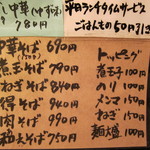 中華(ゆず味)
780円
平日ランチタイムサービス
ごはんもの50円引き
中華そば 690円
煮玉そば 790円
ねぎそば 840円
得そば 940円
肉そば 990円
そば 750円
トッピング
煮玉子 100円
のり 100円
メンマ 150円
ねぎ 150円
麺大盛 100円